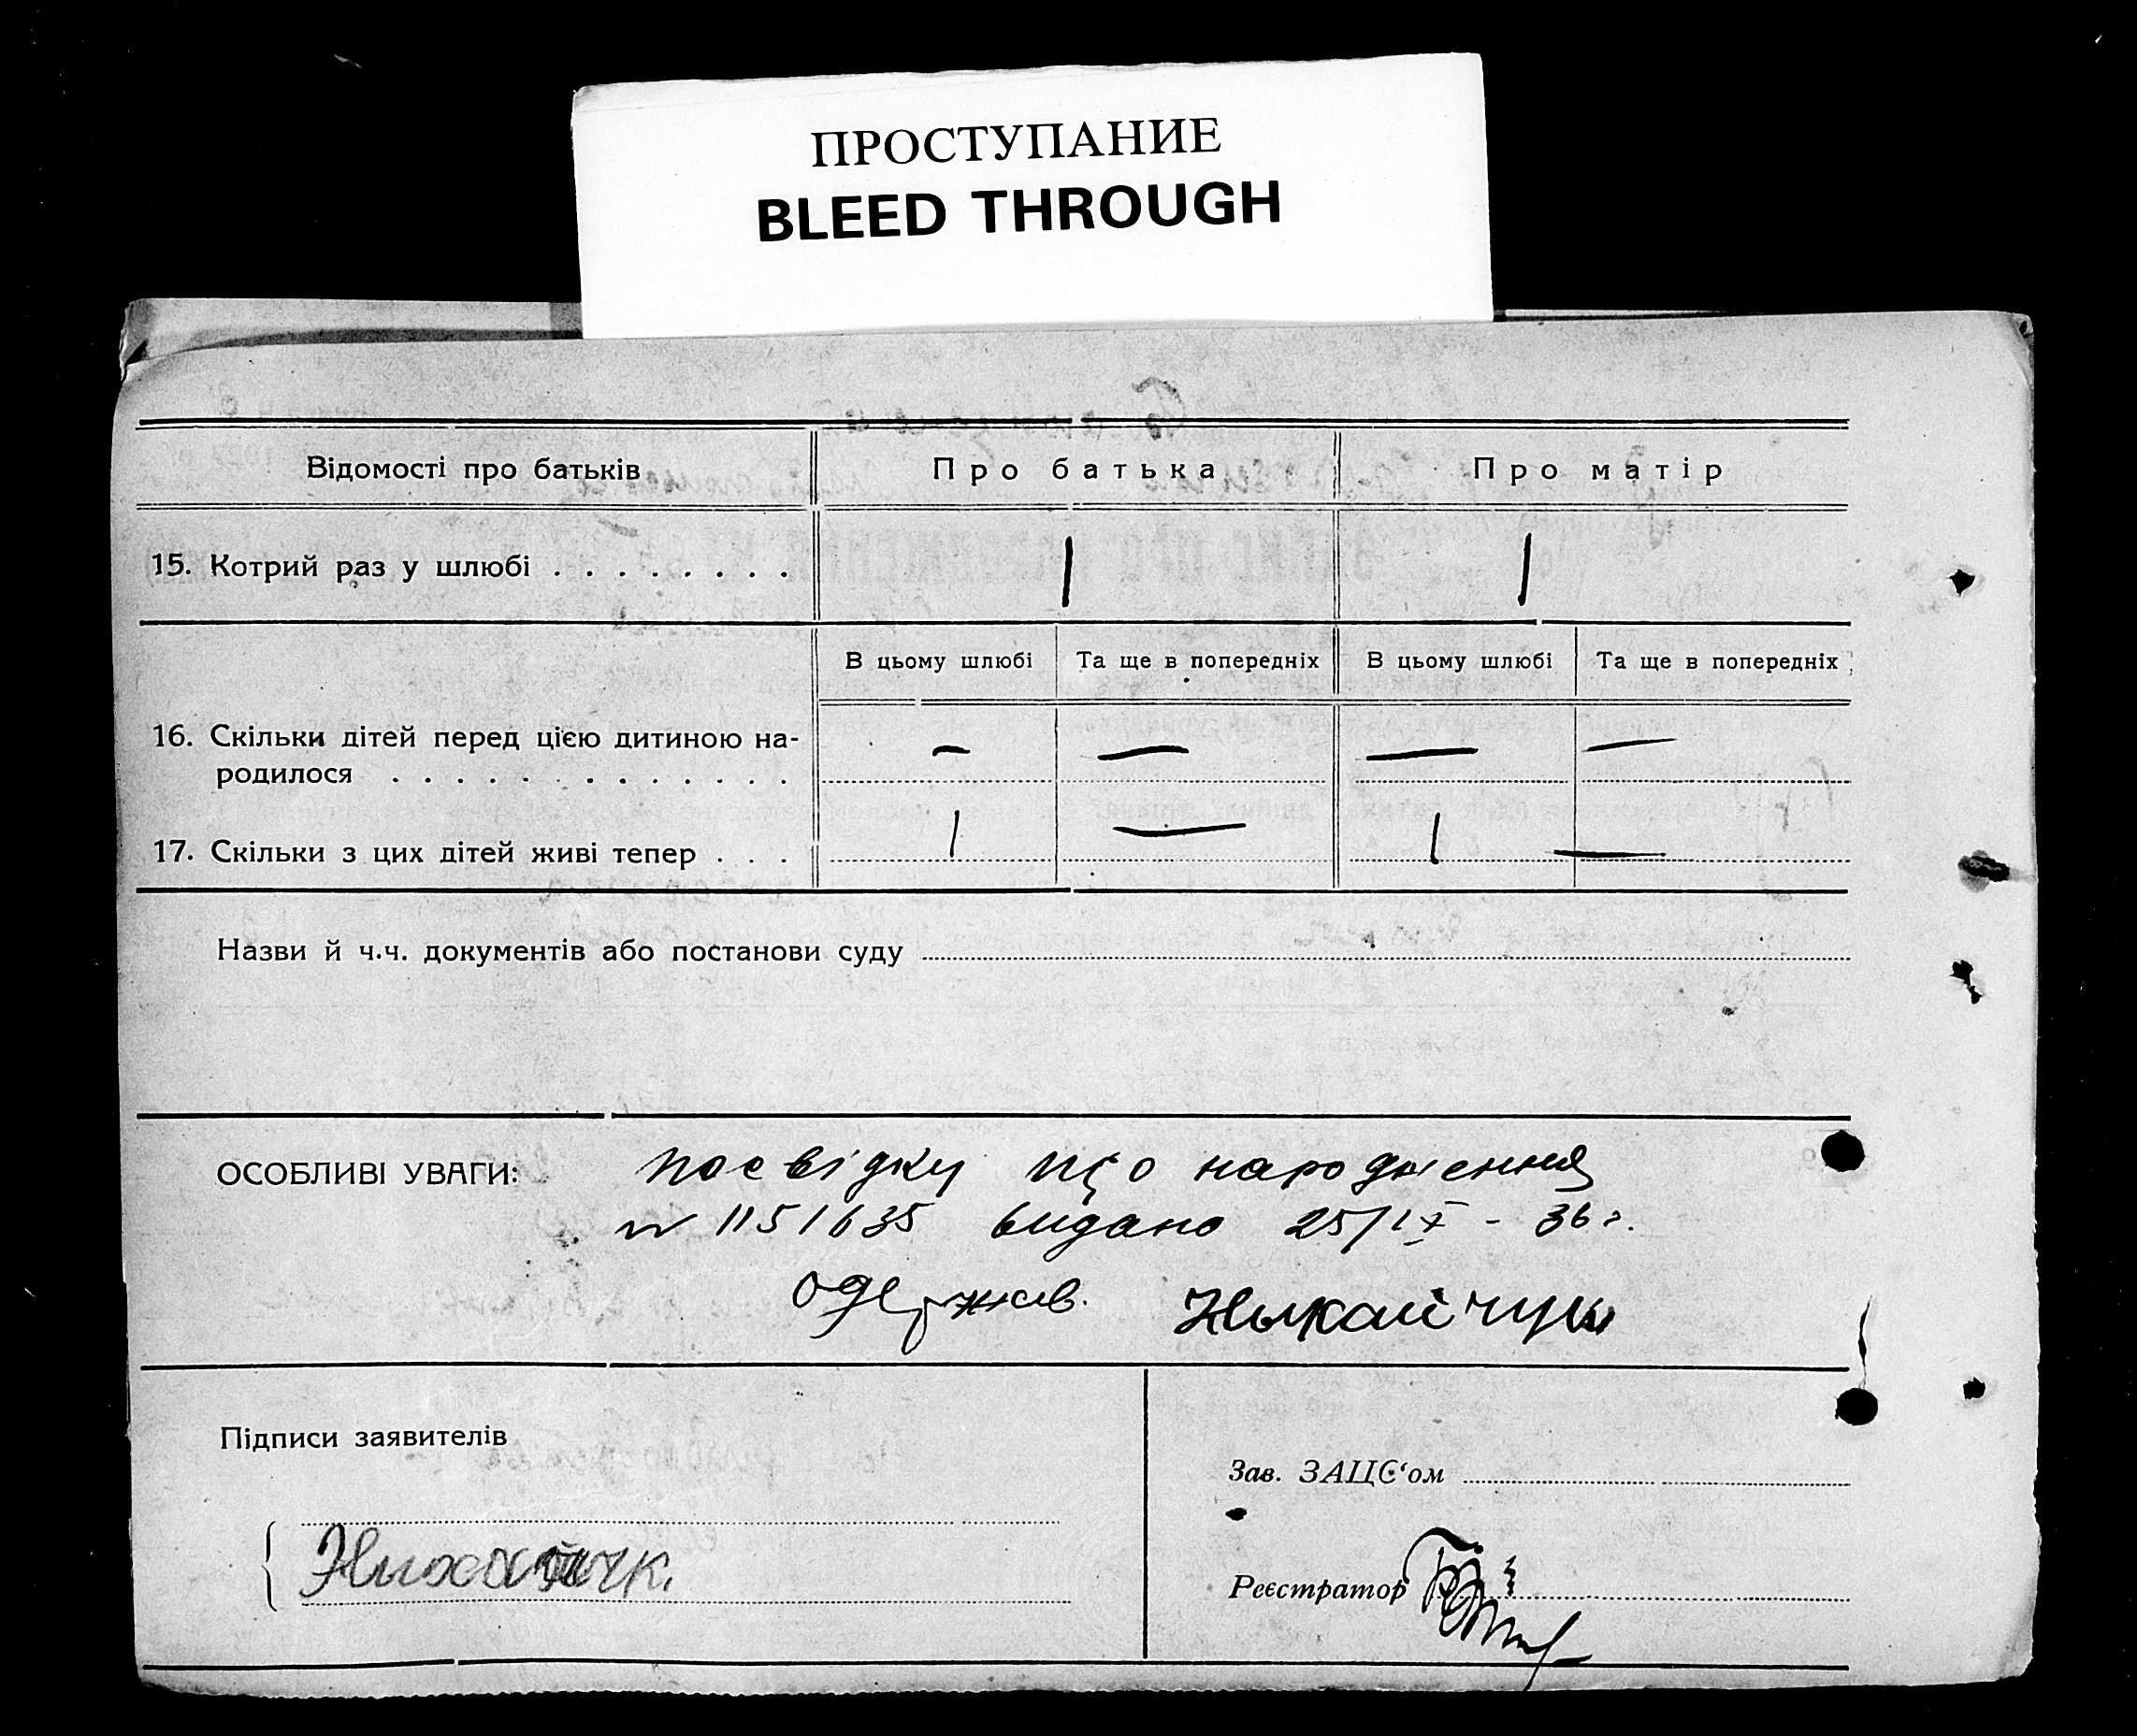 ПРОСТУПАНИЕ
BLEED THROUGH
Відомості про батьків Про батька Про матір
15. Котрий раз у шлюбі . . . . . . . . 1 1
В цьому шлюбі Та ще в попередніх В цьому шлюбі Та ще в попередніх
16. Скільки дітей перед цією дитиною на- — — — —
родилося . . . . . . . . . . . . .
17. Скільки з цих дітей живі тепер . . . 1 — 1 —
Назви й ч.ч. документів або постанови суду
ОСОБЛИВІ УВАГИ: посвідку про народження
№ 1151635 видано 25/IX - 36 г.
одержав.
Підписи заявителів
Зав. ЗАЦС‘ом
Реєстратор